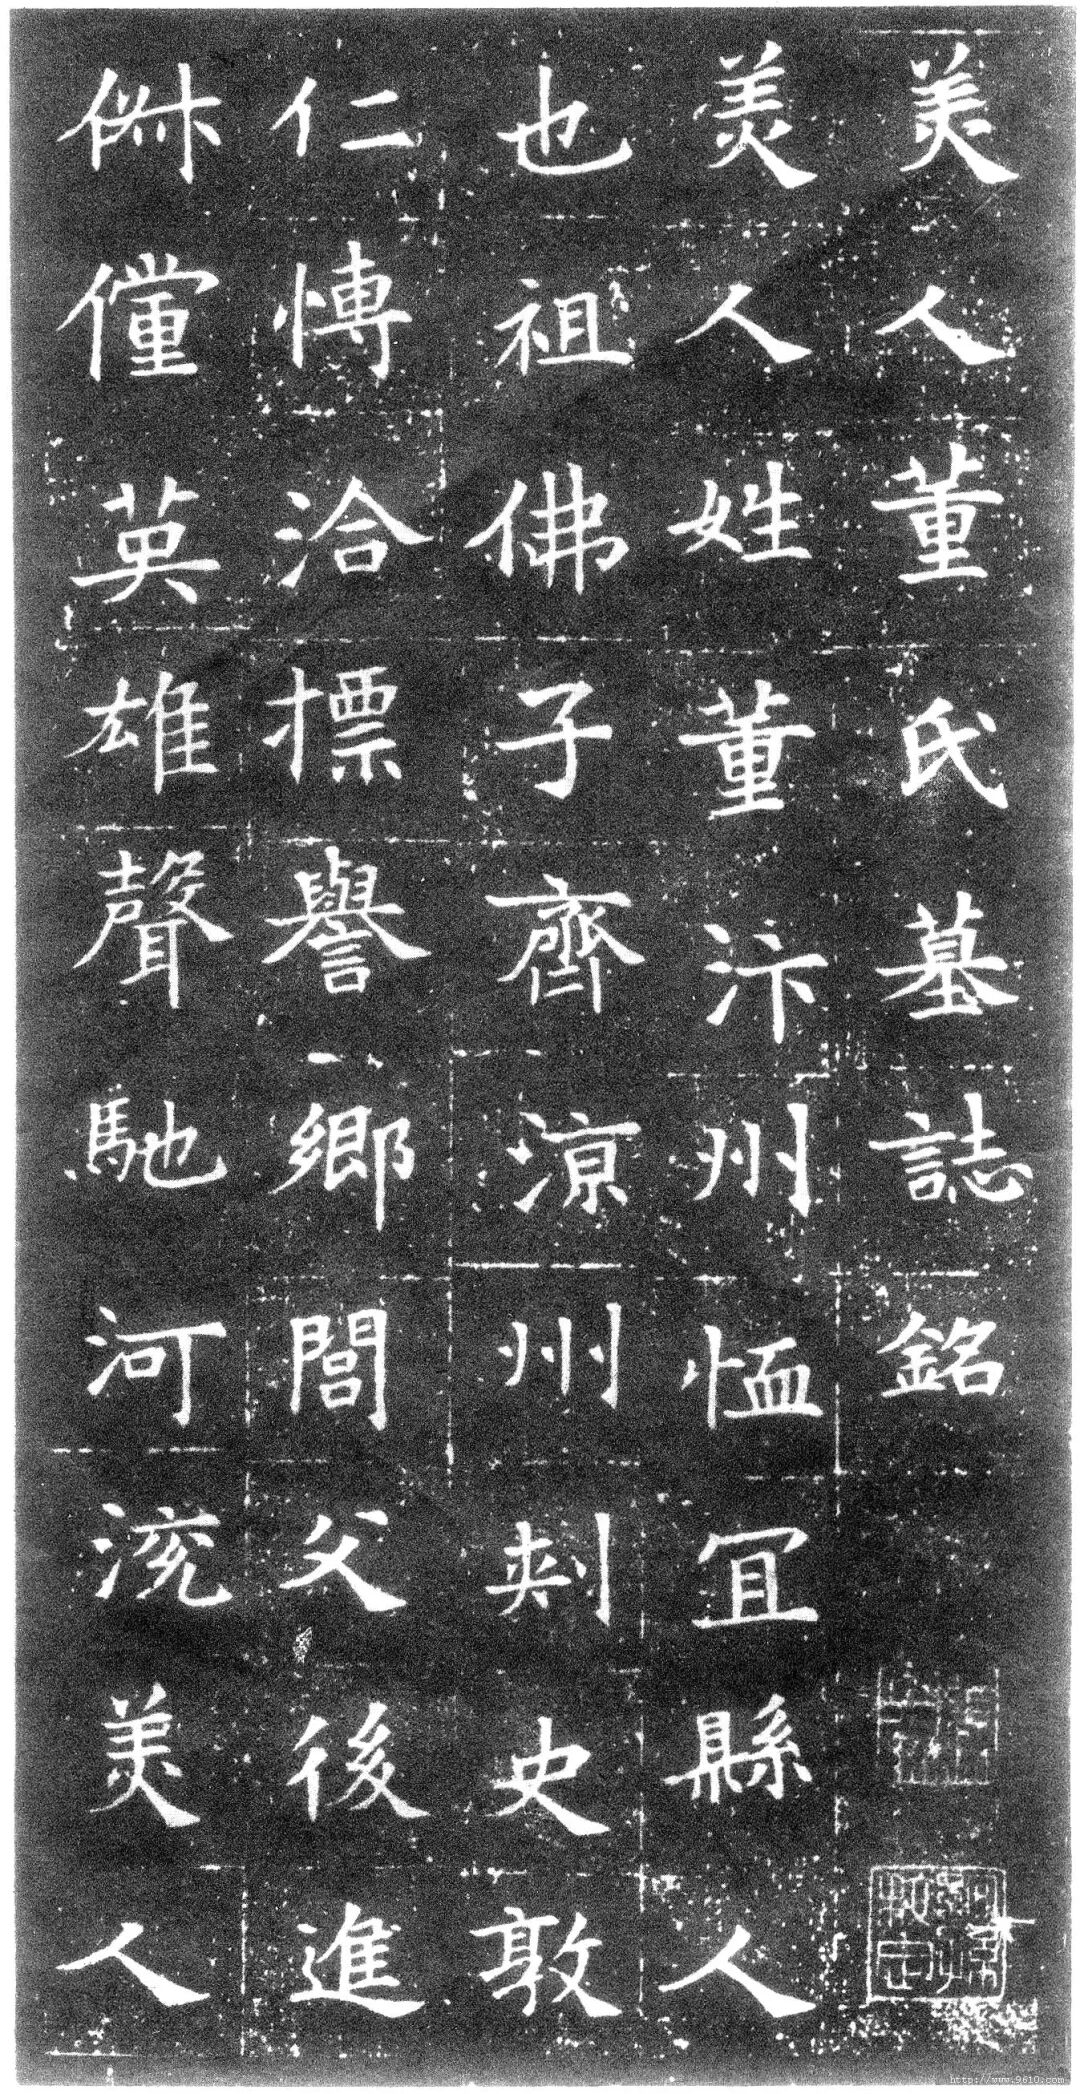 美人董氏墓誌銘
美人姓董汴州恤宜縣人
也祖佛子齊涼州刺史敦
仁愽洽摽譽鄉閭父後進
俶儻英雄聲馳河流美人
http://www.9610.com